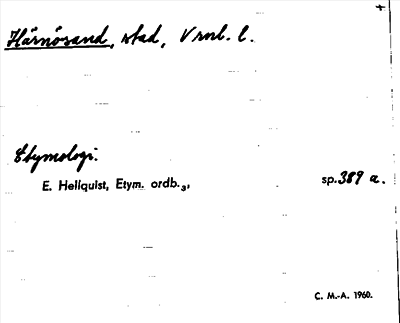 +
Härnösand, stad, Vrnl. l.
Etymologi.
E. Hellquist, Etym. ordb.₃, sp. 389 a.
C. M.-A. 1960.